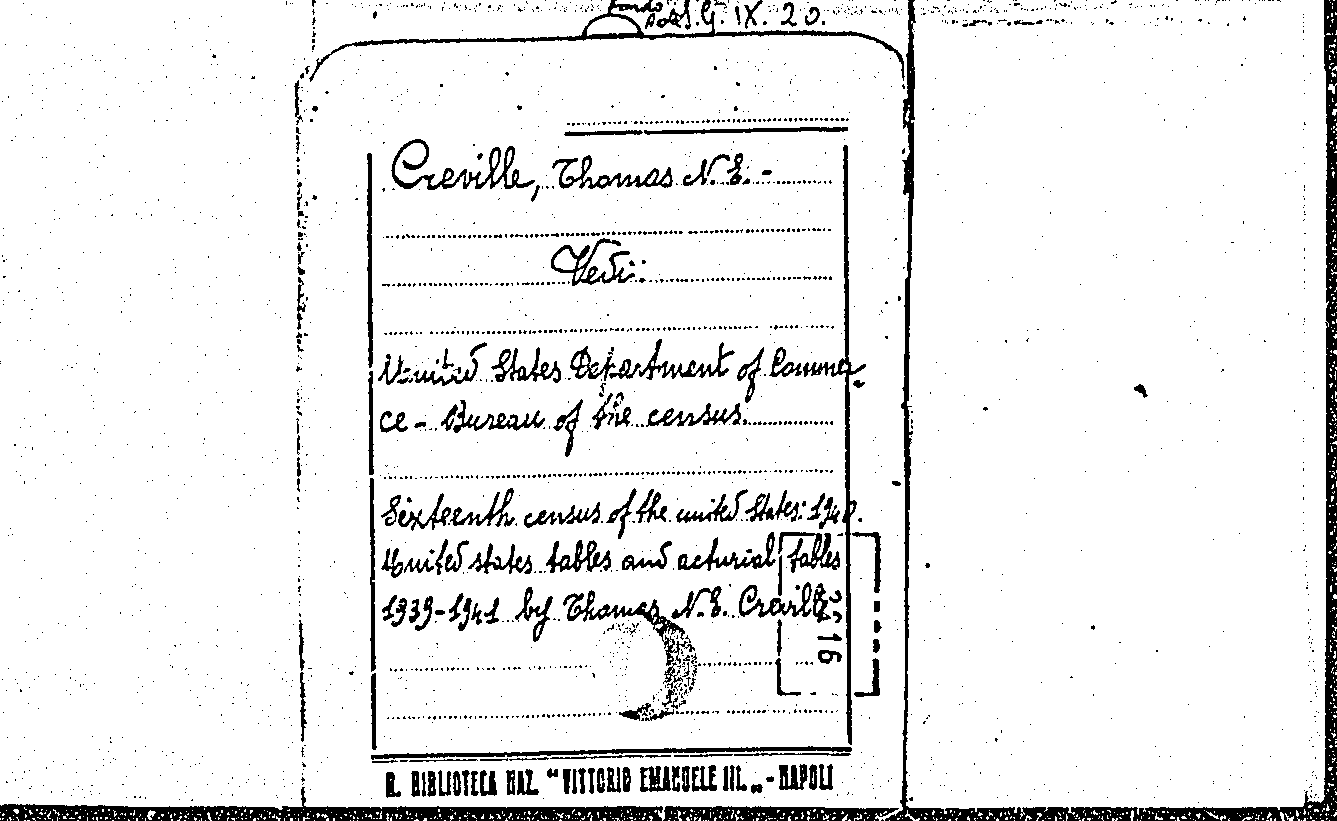 Fondo
S.G. IX. 20.
Creville, Thomas N. E. -
Vedi:
United States Department of Commer
ce - Bureau of the census.
Sixteenth census of the united States: 1940.
United states tables and acturial tables
1939-1941 by Thomas N. E. Creville
16
R. BIBLIOTECA NAZ. "VITTORIO EMANUELE III.„ - NAPOLI